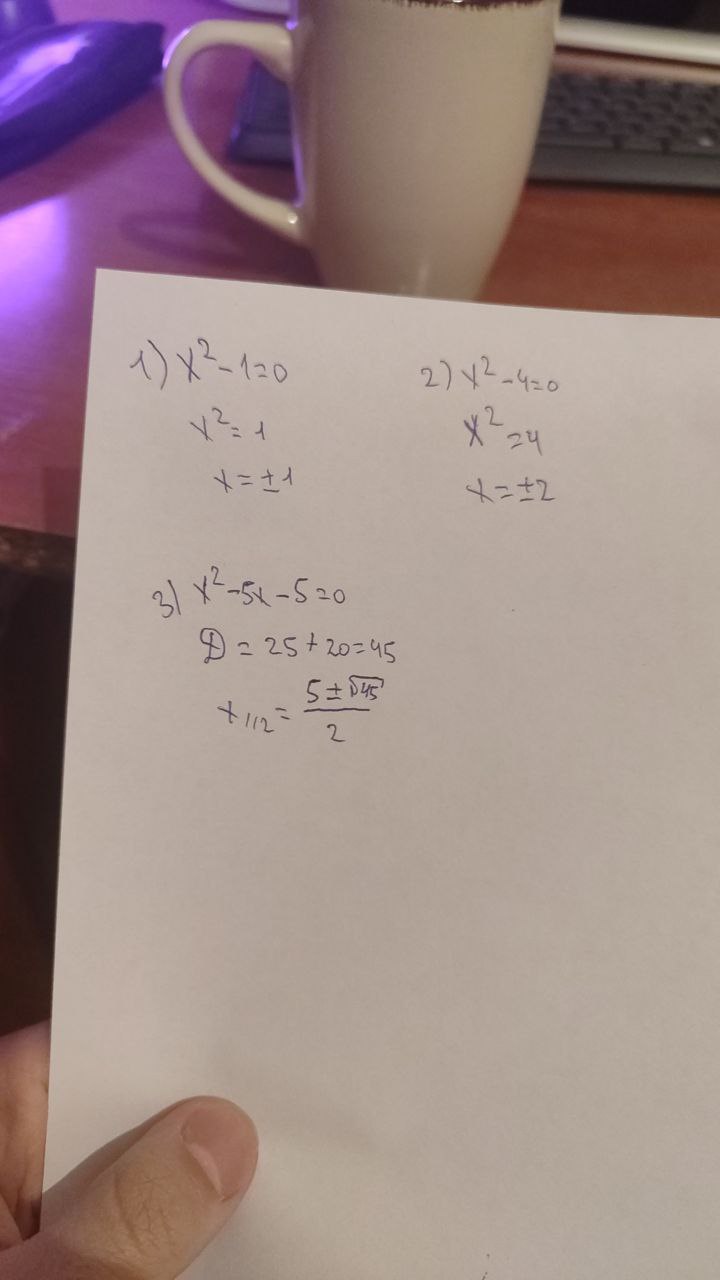 1) x²-1=0
x²=1
x=±1
2) x²-4=0
x²=4
x=±2
3) x²-5x-5=0
D=25+20=45
x₁,₂=(5±√45)/2